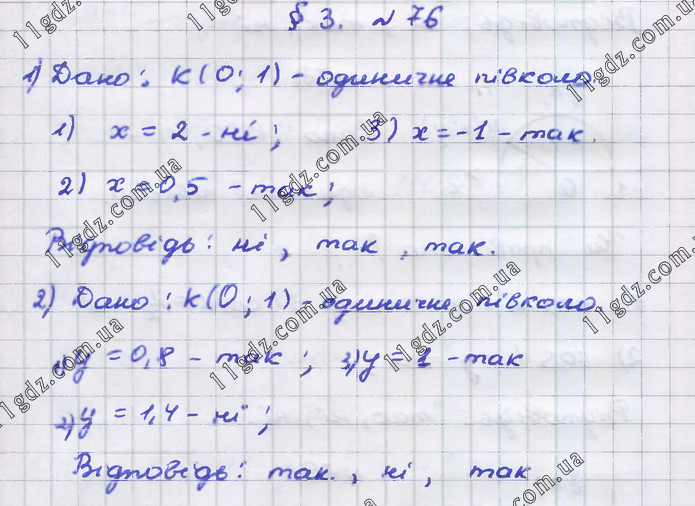 § 3. № 76
1) Дано: K(O; 1) - одиничне півколо.
1) x = 2 - ні; 3) x = -1 - так.
2) x = 0,5 - так;
Відповідь: ні, так, так.
2) Дано: K(O; 1) - одиничне півколо.
1) y = 0,8 - так; 3) y = 1 - так
2) y = 1,4 - ні;
Відповідь: так., ні, так
11gdz.com.ua
11gdz.com.ua
11gdz.com.ua
11gdz.com.ua
11gdz.com.ua
11gdz.com.ua
11gdz.com.ua
11gdz.com.ua
11gdz.com.ua
11gdz.com.ua